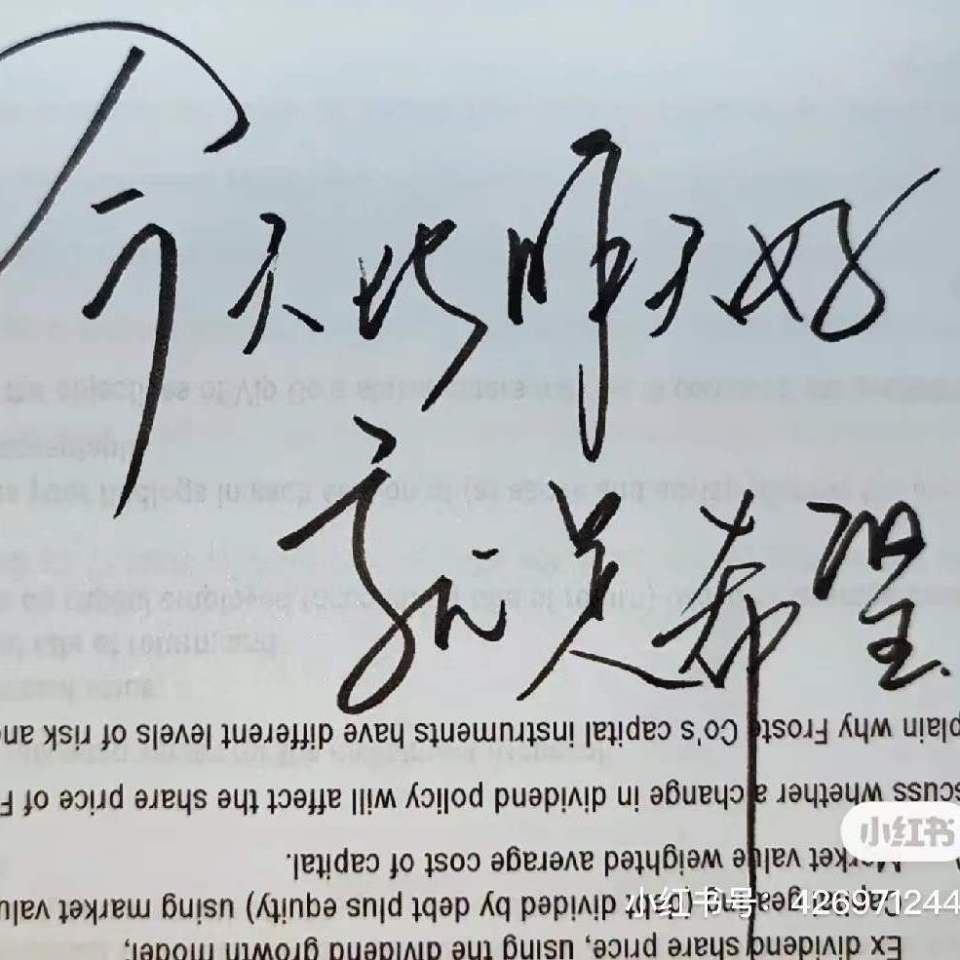 今天比昨天好
就是希望
plain why Froste Co's capital instruments have different levels of risk and
scuss whether a change in dividend policy will affect the share price of F
Market value weighted average cost of capital.
Capital gearing (debt divided by debt plus equity) using market valu
Ex dividend share price, using the dividend growth model;
小红书
小红书号 426971244